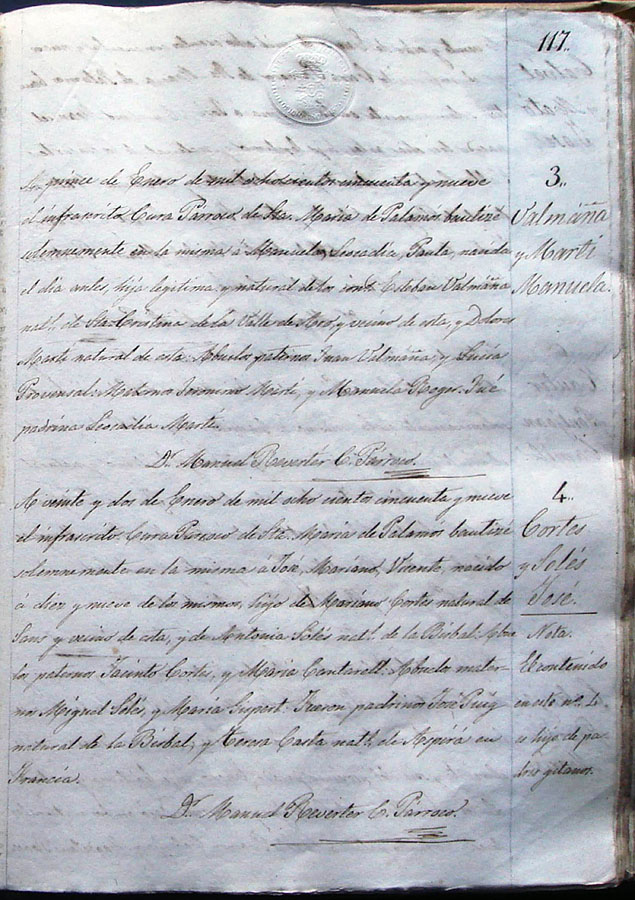 117..
A quince de Enero de mil ochocientos cincuenta y nueve
el infrascrito Cura Párroco de Sta. Maria de Palamós bautizé
solemnemente en la misma á Manuela, Leocadia, Paula, nacida
el dia antes, hija legitima y natural de los Esteban Valmáña
natl. de Sta. Cristina de la Valle de Aro, y vecino de esta, y Dolores
Martí natural de esta. Abuelos paternos Juan Valmáña, y Lucia
Provensal: Maternos Jeronimo Martí, y Manuela Roger. Fué
padrina Leocadia Martí.
Dr. Manuel Revertér C. Párroco.
3..
Valmáña
y Martí
Manuela.
A veinte y dos de Enero de mil ocho cientos cincuenta y nueve
el infrascrito Cura Párroco de Sta. Maria de Palamós bautizé
solemnemente en la misma á José, Mariano, Vicente, nacido
á diez y nueve de los mismos, hijo de Mariano Cortes natural de
Sans y vecino de esta, y de Antonia Solés natl. de la Bisbal: Abue
los paternos Jacinto Cortes, y Maria Cantarell. Abuelos mater-
nos Miguel Solés, y Maria Gispert. Fueron padrinos José Puig
natural de la Bisbal, y Teresa Casta natl. de Aspirá en
Francia.
Dr. Manuel Revertér C. Párroco.
4..
Cortes
y Solés
José.
Nota.
El contenido
en este nº 4.
es hijo de pa-
dres gitanos.